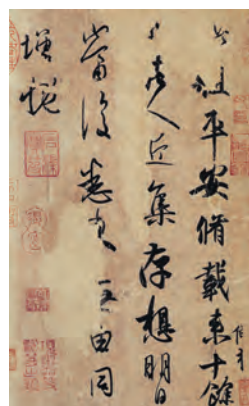 此粗平安脩載來十餘
日諸人近集存想明日
當復悉來無由同
增慨